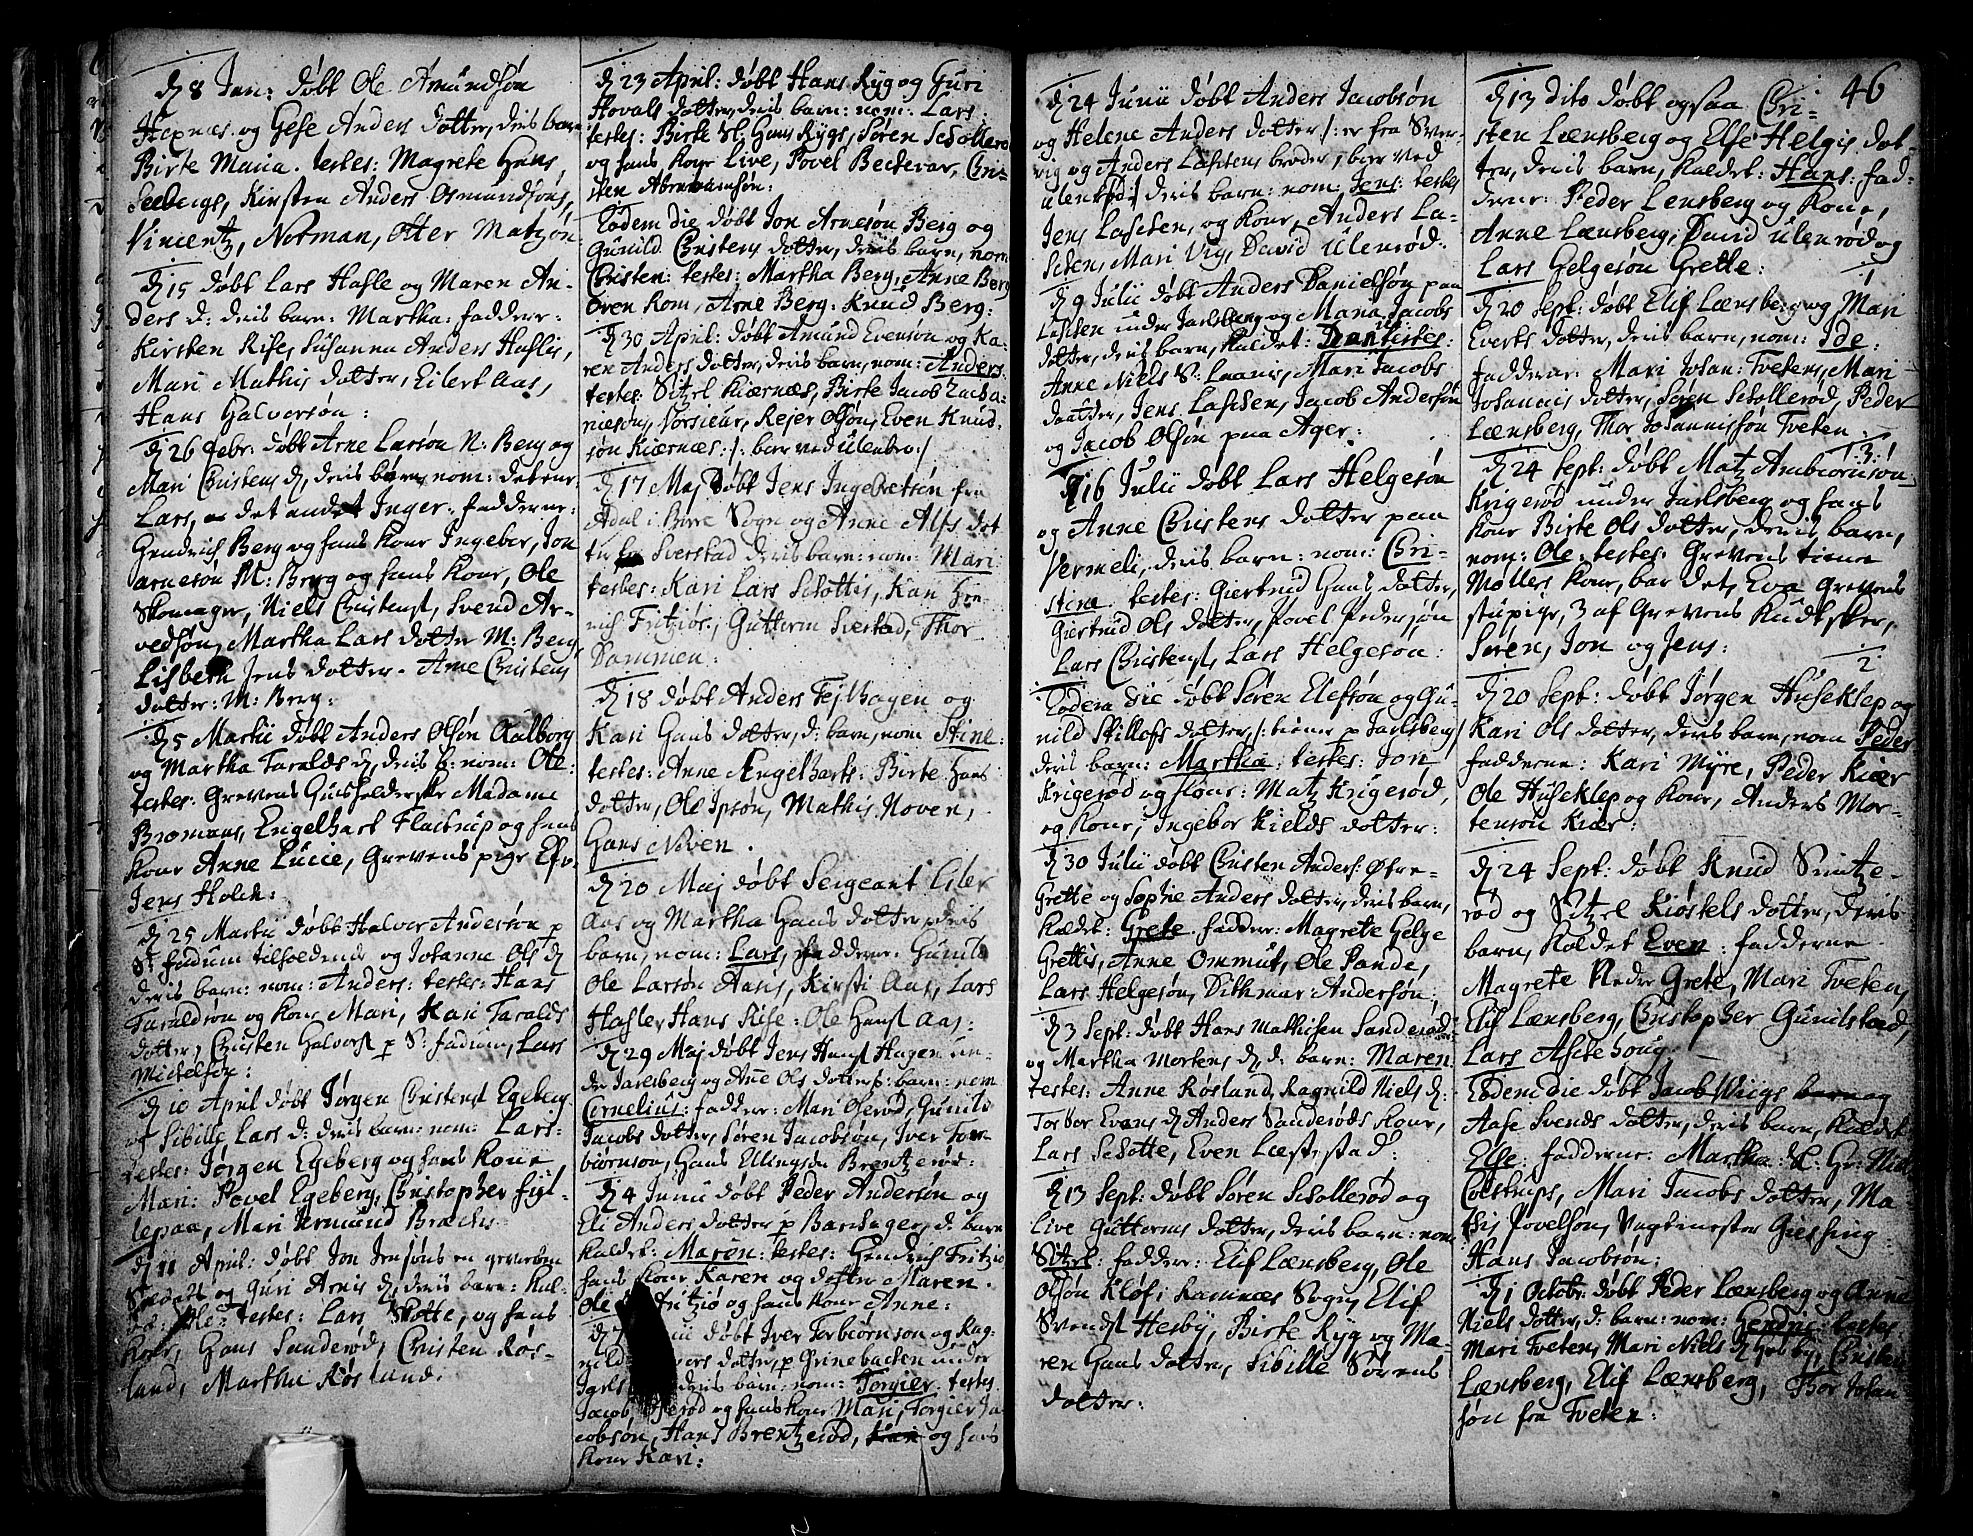 46
d 8 Jan: døbt Ole Amundsøn
og Gese Anders dotter, deris barn
Birte Maria. testes: Magrete Hans
Kirsten Anders Osmundsøns,
Vincentz, Norman, Otter Matzøn
d 15 døbt Lars Hasle og Maren An-
ders d: deris barn: Martha: faddere:
Kirsten Rise, Susanna Anders Haslis,
Mari Mathis dotter, Eilert Aas,
Hans Halversøn:
d 26 Febr: døbt Arne Larsøn N: Berg og
Mari Christens d, deris børn, nom: det ene
Lars, det andet Inger: fadderne:
Hendrich Berg og hans Kone Ingebor, Jon
arnesøn M: Berg og hans Kone, Ole
Skomager, Niels Christens, Svend Ar-
vedsøn, Martha Lars dotter M: Berg
Lisbeth Jens dotter. Anne Christens
dotter: M: Berg:
d 5 Martii døbt Anders Olsøn Aalborg
og Martha Taralds d, deris b: nom: Ole:
testes: Grevens Huusholderske Madame
Bromans, Engelhart Flastrup og hans
Kone Anne Lucie, Grevens pige Efv.
Jens Holck:
d 25 Martii døbt Halvor Andersøn p
tilholdende og Johanne Ols d
deris barn: nom: Anders: testes: Hans
Taraldsøn og Kone Mari, Kari Taralds
dotter, Christen Halvors p S: Lars
Michelsøn:
d 10 April døbt Jørgen Christens Egeberg
og Sibille Lars d: deris barn: nom: Lars:
testes: Jørgen Egeberg og hans Kone,
Mari: Povel Egeberg, Christopher
Mari Bræches:
d 11 April: døbt Jon Jensøns en gevorben
Soldats og Guri Arnis d, deris barn: Kal-
det: Ole: testes: Lars Skotte, og hans
Kone, Hans Sanderød, Christen Røs-
land, Martha Røsland.
d 23 April: døbt Hans Ryg og Guri
Hovals dotter, deris barn: nom: Lars:
testes: Birte Sl. Hans Rygs, Søren Schollerød
og hans Kone Live, Povel Beckevar, Chri-
sten Abrahamsøn:
Eodem die døbt Jon Arnesøn Berg og
Gunild Christens dotter, deris barn, nom
Christen: testes: Martha Berg, Anne Berg
Oven Kom, Arne Berg: Knud Berg:
d 30 April: døbt Amund Evensøn og Ka-
ren Anders dotter, deris barn, nom: Anders:
testes: Sitzel Kiærnæs, Birte Jacob Zacha-
riesøn, Reier Olsøn, Even Knud-
søn Kiærnæs: /: bær ved Ulenbro:/
d 17 Maj døbt Jens Ingebretsøn fra
Adal i Borre Sogn og Anne Alfs dot
Sverstad deris barn: nom: Mari
testes: Kari Lars Schottis, Kari Hen-
rich Fritziøs, Guttorm Sverstad, Thor
Dammen:
d 18 døbt Anders Fejlhagen og
Kari Hans dotter, d: barn, nom Stine:
testes: Anne Engelharts: Birte Hans
dotter, Ole Ipsøn, Mathis Noven,
Hans Noven.
d 20 Maj døbt Sergeant Eiler
Aas og Martha Hans dotter deris
barn, nom: Lars, faddere: Gunild
Ole Larsøn Aass, Kirsti Aas, Lars
Hasler Hans Rise: Ole Hans Aas:
d 29 Maj døbt Jens Hans Hagen un-
der Jarlsberg og Anne Ols dotter d: barn: nom
Cornelius: fadder: Mari Oserød, Gunild
Jacobs dotter, Søren Jacobsøn, Iver Tor-
biørnsøn, Hans Ellingsøn Brentzerød:
d 4 Junii døbt Peder Andersøn og
Eli Anders dotter p Barchager, d: barn
kaldet: Maren: testes: Hendrich Fritziø
hans Kone Karen og dotter Maren.
Ole Fritziø og hans Kone Anne:
d 7 døbt Iver Torbiørnsøn og Rag-
nild dotter, p Grinebacken under
Jarls deris barn: nom: Torgier. testes.
Jacob Oserød og hans Kone Mari, Torgier Ja-
cobsøn, Hans Brentzerød, og hans
Kone Kari:
d 24 Junii døbt Anders Jacobsøn
og Helene Anders dotter /: er fra Sver-
vig og Anders Laschens broder, bær ved
Ulenrød:/ deris barn: nom: Jens: testes
Jens Laschen, og Kone, Anders La-
schen, Mari Vig, David Ulenrød:
d 9 Julii døbt Anders Danielsøn paa
Laschen under Jarlsberg og Maria Jacobs
dotter, deris barn, kaldet: Daniel testes:
Anne Niels S: Mari Jacobs
daatter, Jens Laschen, Jacob Andersøn
og Jacob Olsøn paa Ager:
d 16 Julii døbt Lars Helgesøn
og Anne Christens dotter paa
Vermeli, deris barn: nom: Chri-
stine. testes: Giertrud Hans dotter,
Giertrud Ols dotter, Povel Pedersøn
Lars Christens, Lars Helgesøn:
Eodem die døbt Søren Elefsøn og Gu-
nild Skillofs dotter, /: tiener p Jarlsberg/
deris barn: Martha: testes: Jon
Krigerød og Kone: Matz Krigerød,
og Kone, Ingebor Kields dotter:
d 30 Julii døbt Christen Anders: Øfre-
Grette og Sophie Anders dotter, deris barn,
kaldet: Grete. fadder: Magrete Helge
Grettis, Anne Ommut, Ole Pande,
Lars Helgesøn, Dithmar Andersøn,
d 3 Sept: døbt Hans Mathisen Sanderød
og Martha Mortens d, d: barn: Maren
testes: Anne Rosland, Ragnild Niels d:
Torbor Evens d Anders Sanderøds Kone,
Lars Schotte, Even Læstestad:
d 13 Sept: døbt Søren Schollerød og
Live Guttorms dotter, deris barn: nom
Sitzel: fadder: Elif Lænsberg, Ole
Olsøn Kløf, Ramnæs Sogn, Elif
Svends Hesby, Birte Ryg og Ma-
ren Hans dotter, Sibille Sørens
dotter:
d 13 dito døbt ogsaa Chri-
sten Lænsberg og Else Helgis dot-
ter, deris barn, kaldet: Hans: fad-
derne: Peder Lensberg og Kone,
Anne Lænsberg, David Ulenrød og
Lars Helgesøn Grette:
1
d 20 Sept: døbt Elif Lænsberg og Mari
Everts dotter, deris barn, nom: Ide:
fadderne: Mari Johan: Tvetens, Mari
Johannis dotter, Søren Schollerød, Peder
Lænsberg, Thor Johannissøn Tveten:
3
d 24 Sept: døbt Matz Ambiørnsøn
Krigerød under Jarlsberg og hans
Kone Birte Ols dotter, deris barn,
nom: Ole: testes: Grevens tienere
Møllers Kone, bar det, Eva Grevens
stuepige, 3 af Grevens Kudsker,
Søren, Jon og Jens:
2
d 20 Sept: døbt Jørgen Huseklep og
Kari Ols dotter, deris barn, nom Peder
fadderne: Kari Myre, Peder Kiær
Ole Huseklep og Kone, Anders Mor-
tensøn Kiær:
d 24 Sept: døbt Knud Snitze-
rød og Sitzel Kiøstels dotter, deris
barn, kaldet Even: fadderne
Magrete Neder Grete, Mari Tveten,
Elif Lænsberg, Christopher Gunilstad,
Lars Aschehoug.
Eodem die døbt Jacob Wiigs barn og
Aase Svends dotter, deris barn, kaldet
Else: fadderne: Martha Sl: Hr: Niels
Colstrups, Mari Jacobs dotter, Ma
this Povelsøn, Vagtmester Giessing
Hans Jacobsøn:
d 1 Octobr: døbt Peder Lænsberg og Anne
Niels dotter, d: barn: nom: testes:
Mari Tveten, Mari Niels d Hesby, Christen
Lænsberg, Elif Lænsberg, Thor Johan-
søn fra Tveten: